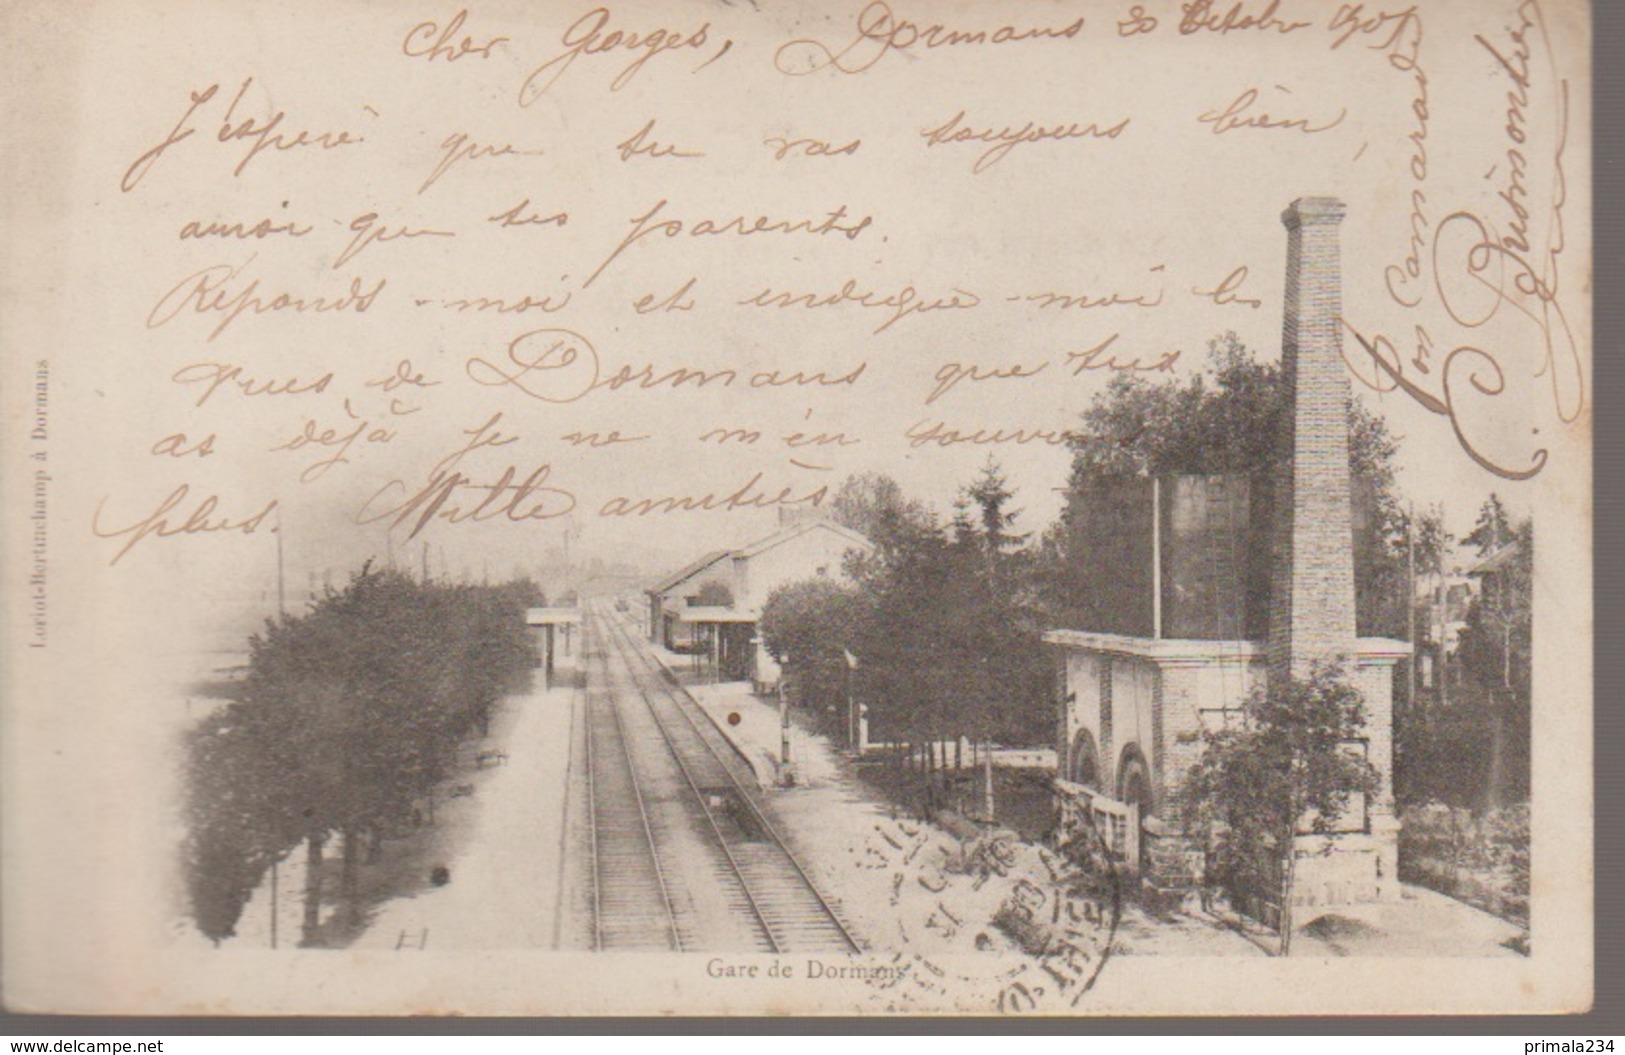 Cher Georges, Dormans 20 Octobre 1901
J'espère que tu vas toujours bien,
ainsi que tes parents.
Réponds-moi et indique-moi les
vues de Dormans que tu
as déjà je ne m'en souviens
plus. Mille amitiés
Ton Camarade
Loriot-Bertinchamp à Dormans
Gare de Dormans
www.delcampe.net
primala234